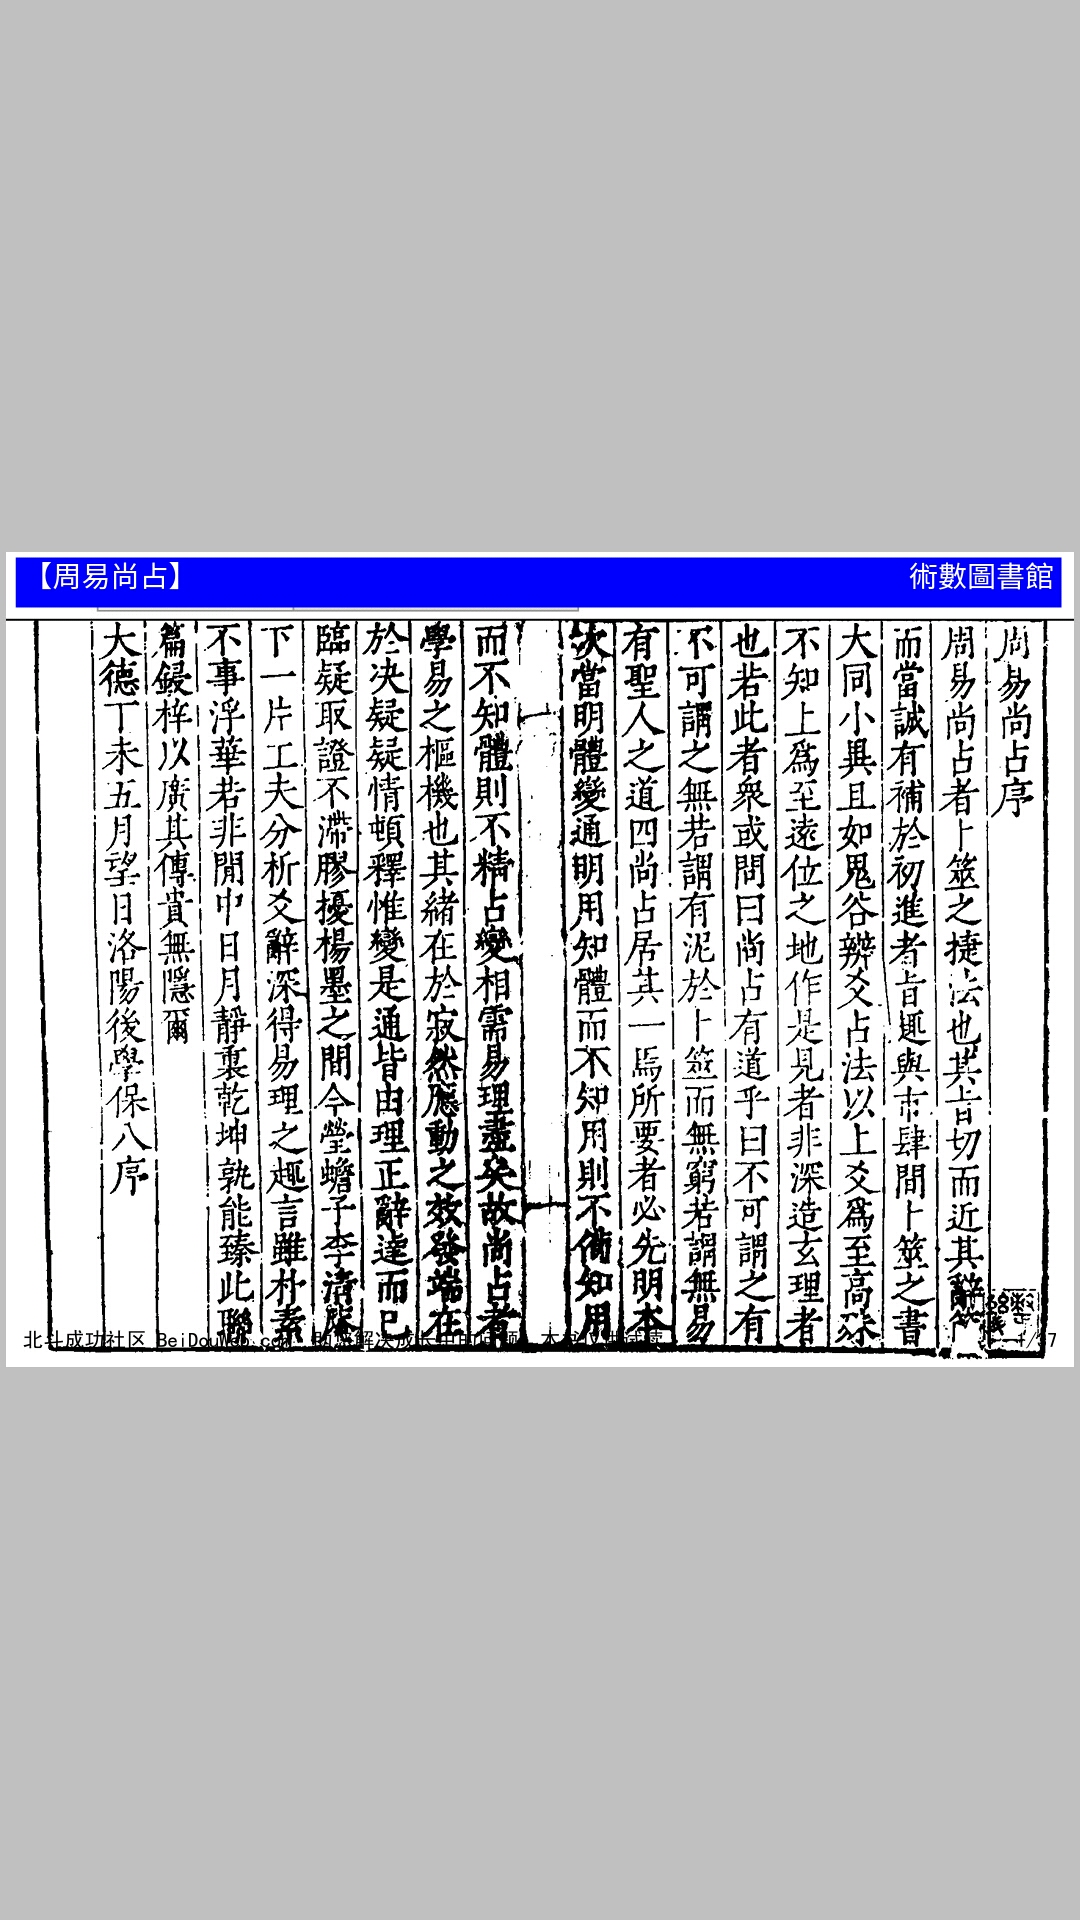 【周易尚占】
術數圖書館
周易尚占序
周易尚占者卜筮之捷法也其旨切而近其辭
而當誠有補於初進者旨趣與市肆間卜筮之書
大同小異且如鬼谷辨爻占法以上爻爲至高殊
不知上爲至遠位之地作是見者非深造玄理者
也若此者衆或問曰尚占有道乎曰不可謂之有
不可謂之無若謂有泥於卜筮而無窮若謂無易
有聖人之道四尚占居其一焉所要者必先明本
次當明體變通明用知體而不知用則不備知用
而不知體則不精占變相需易理盡矣故尚占者
學易之樞機也其緒在於寂然應動之效發端在
於決疑疑情頓釋惟變是通皆由理正辭達而已
臨疑取證不滯膠擾楊墨之間今瑩蟾子李清庵
下一片工夫分析爻辭深得易理之趣言雖朴素
不事浮華若非閒中日月靜裏乾坤孰能臻此聯
篇鋟梓以廣其傳貴無隱爾
大德丁未五月望日洛陽後學保八序
北斗成功社区 BeiDouWeb.com